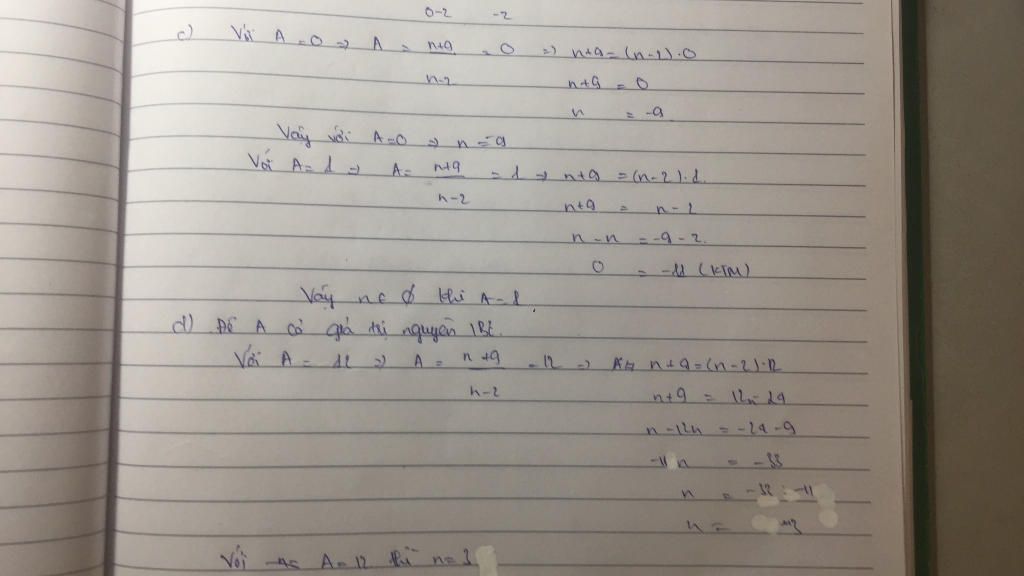 0-2 -2
c) Với A=0 => A = n+9 / n-2 = 0 => n+9=(n-2)·0
n+9 = 0
n = -9
Vậy với A=0 => n = -9
Với A=1 => A= n+9 / n-2 = 1 => n+9 =(n-2)·1.
n+9 = n-2
n-n = -9-2.
0 = -11 (KTM)
Vậy n∈ Ø khi A=1.
d) Để A có giá trị nguyên
Với A = 12 => A = n+9 / n-2 = 12 => n+9=(n-2)·12
n+9 = 12n-24
n-12n = -24-9
-11n = -33
n = -33 : -11
n = 3
Với A=12 thì n=3